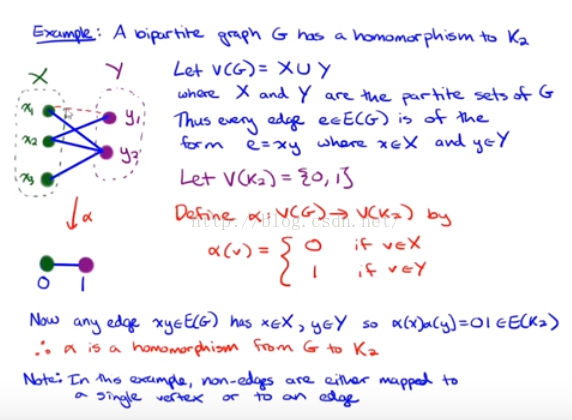 Example: A bipartite graph G has a homomorphism to K₂
X
Y
Let V(G) = X ∪ Y
where X and Y are the partite sets of G
x₁
y₁
Thus every edge e∈E(G) is of the
x₂
y₂
form e=xy where x∈X and y∈Y
x₃
Let V(K₂) = {0, 1}
α
Define α: V(G) → V(K₂) by
http://blog.csdn.net/
α(v) = { 0 if v∈X
1 if v∈Y
0 1
Now any edge xy∈E(G) has x∈X, y∈Y so α(x)α(y)=01∈E(K₂)
∴ α is a homomorphism from G to K₂
Note: In this example, non-edges are either mapped to
a single vertex or to an edge